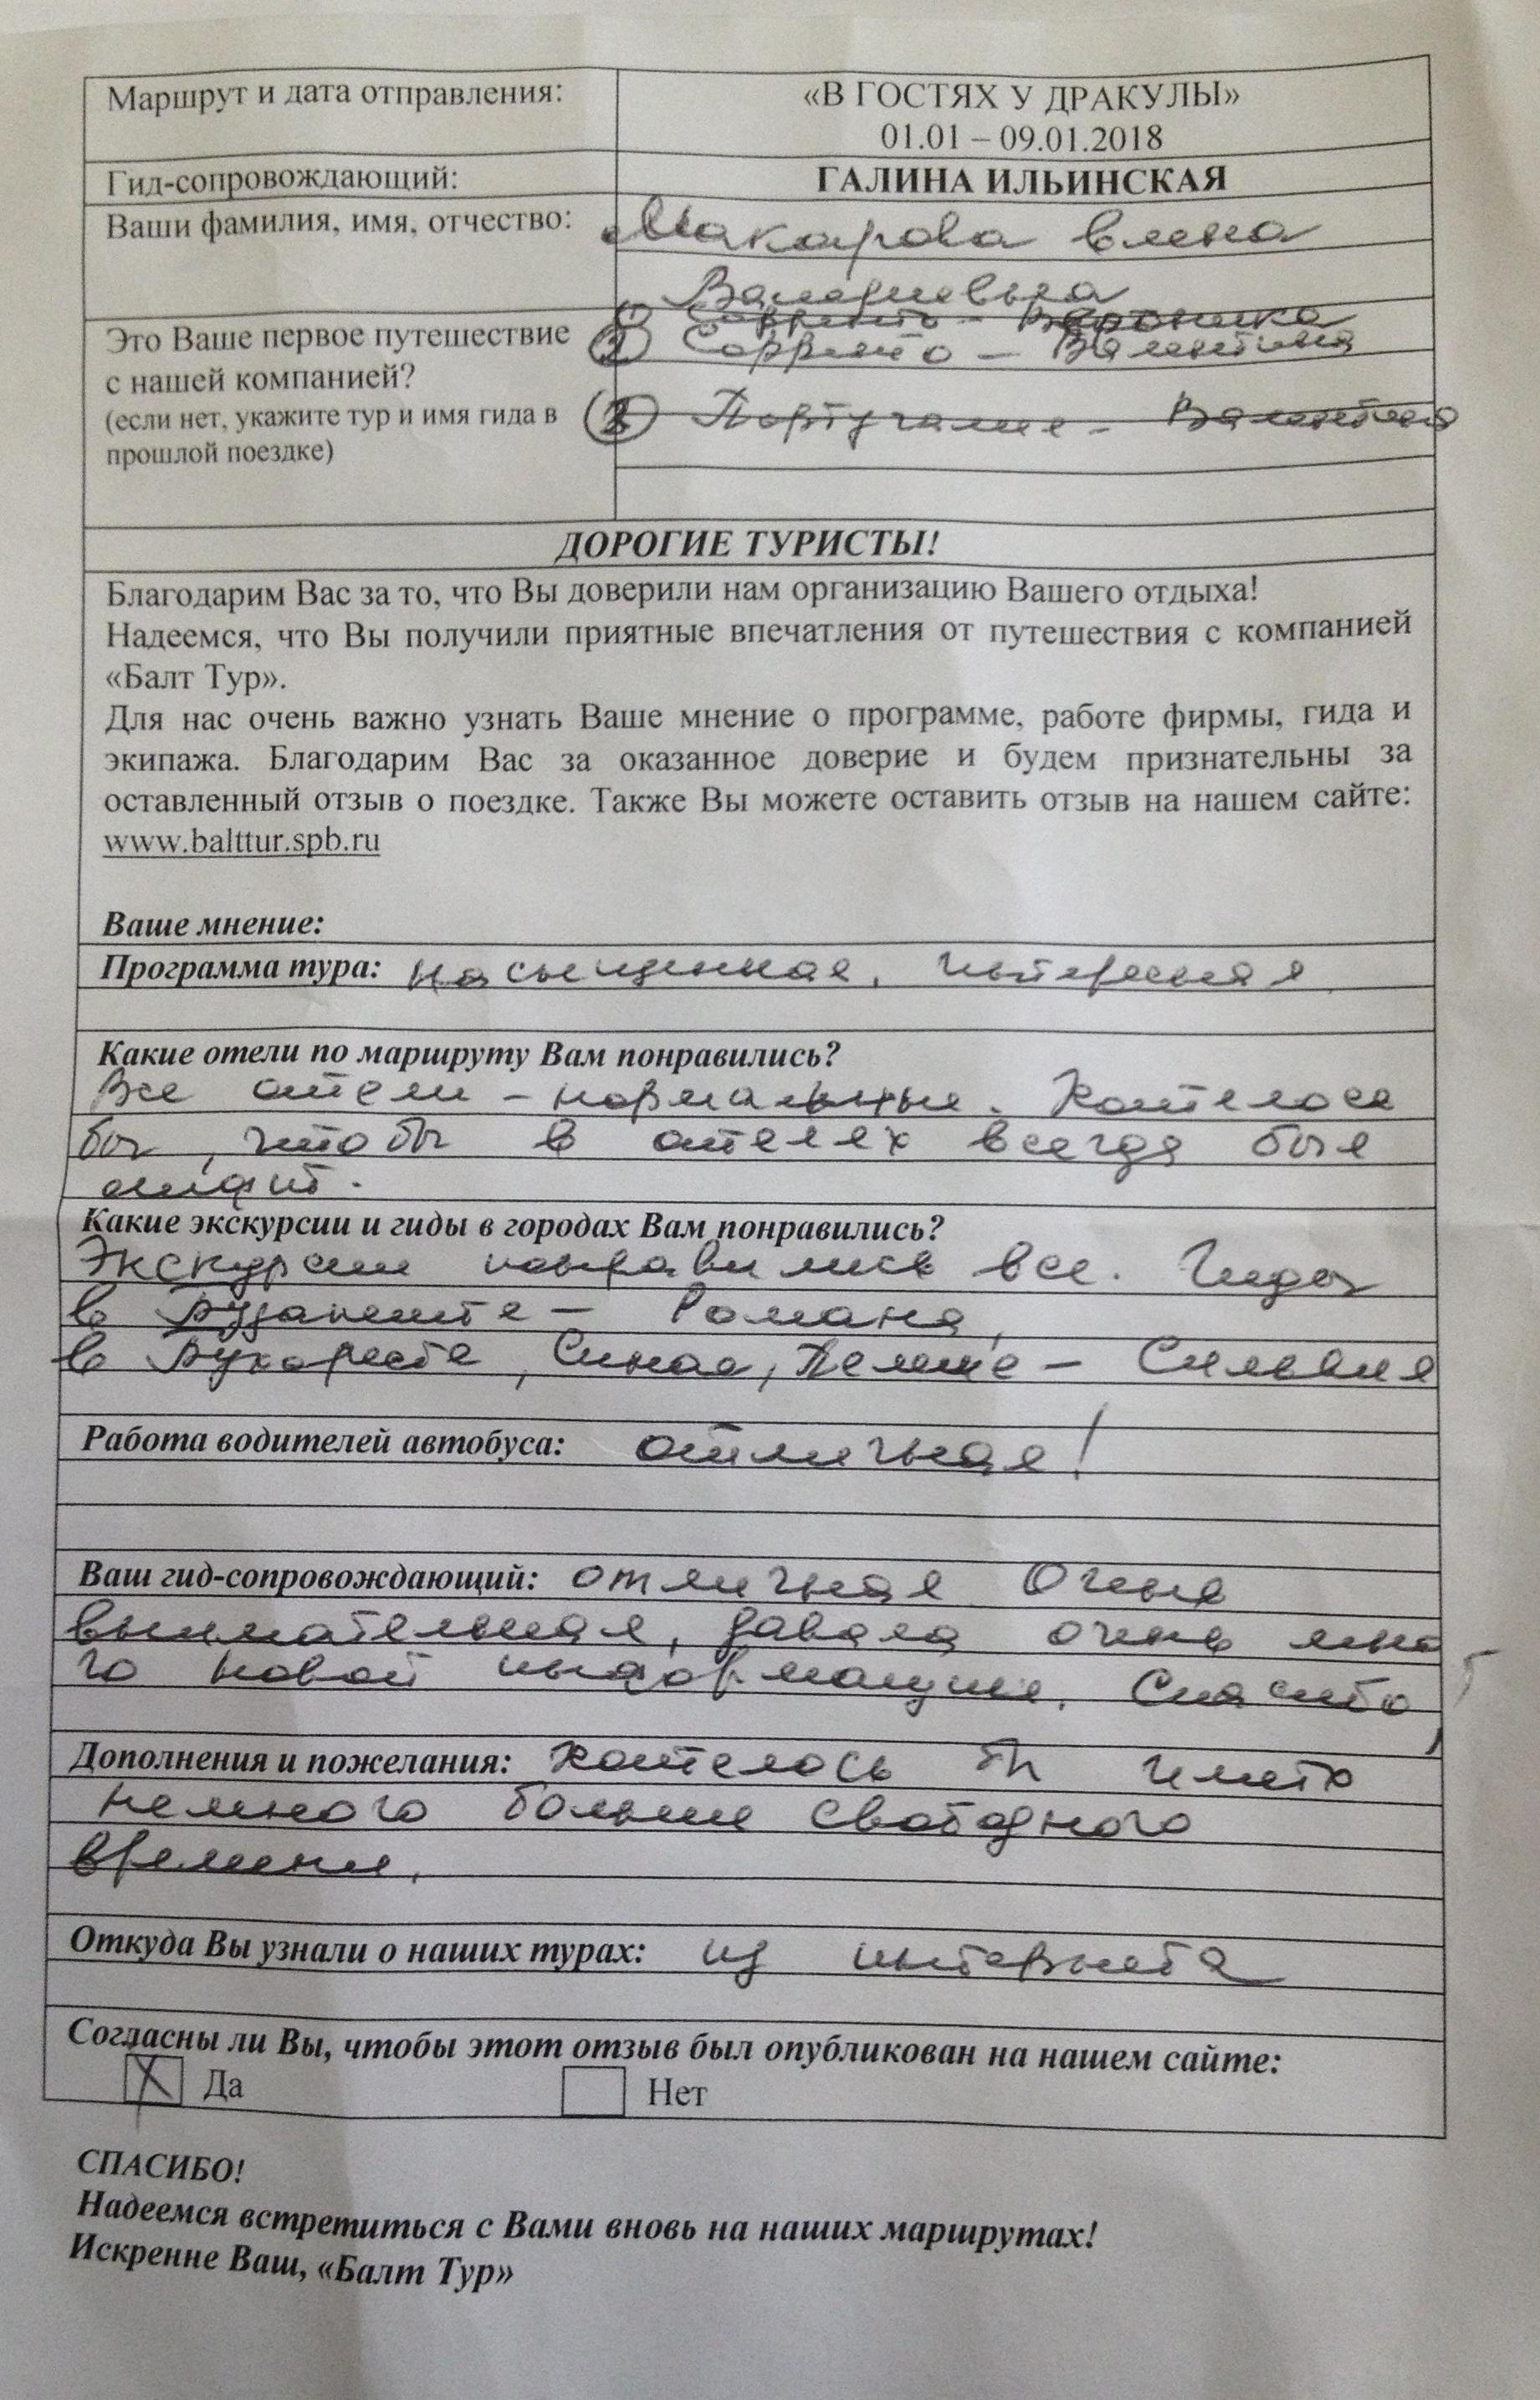 Маршрут и дата отправления:
«В ГОСТЯХ У ДРАКУЛЫ»
01.01 – 09.01.2018
Гид-сопровождающий:
ГАЛИНА ИЛЬИНСКАЯ
Ваши фамилия, имя, отчество:
Макарова Елена
Валериевна
Это Ваше первое путешествие
с нашей компанией?
(если нет, укажите тур и имя гида в
прошлой поездке)
1) Сорренто - Вероника
2) Сорренто - Валентина
Португалия - Валентина
ДОРОГИЕ ТУРИСТЫ!
Благодарим Вас за то, что Вы доверили нам организацию Вашего отдыха!
Надеемся, что Вы получили приятные впечатления от путешествия с компанией
«Балт Тур».
Для нас очень важно узнать Ваше мнение о программе, работе фирмы, гида и
экипажа. Благодарим Вас за оказанное доверие и будем признательны за
оставленный отзыв о поездке. Также Вы можете оставить отзыв на нашем сайте:
www.balttur.spb.ru
Ваше мнение:
Программа тура: насыщенная, интересная
Какие отели по маршруту Вам понравились?
Все отели - нормальные. Хотелось
бы, чтобы в отелях всегда был
лифт.
Какие экскурсии и гиды в городах Вам понравились?
Экскурсии понравились все. Гиды
в Будапеште - Романа,
в Бухаресте, Синае, Пелеше - Сильвия
Работа водителей автобуса: отличная!
Ваш гид-сопровождающий: отличная Очень
внимательная, давала очень мно
го новой информации. Спасибо
Дополнения и пожелания: хотелось бы иметь
немного больше свободного
времени.
Откуда Вы узнали о наших турах: из интернета
Согласны ли Вы, чтобы этот отзыв был опубликован на нашем сайте:
X Да Нет
СПАСИБО!
Надеемся встретиться с Вами вновь на наших маршрутах!
Искренне Ваш, «Балт Тур»